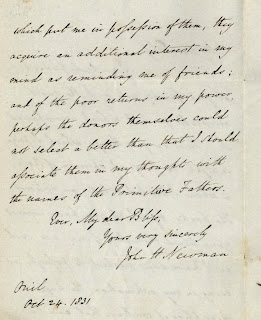 which put me in possession of them, they
acquire an additional interest in my
mind as reminding me of friends;
and of the poor returns in my power
perhaps the donors themselves could
not select a better than that I should
associate them in my thoughts with
the names of the Primitive Fathers.
Ever, My dear Bliss,
Yours very sincerely
John H Newman
Oriel.
Oct 24. 1831